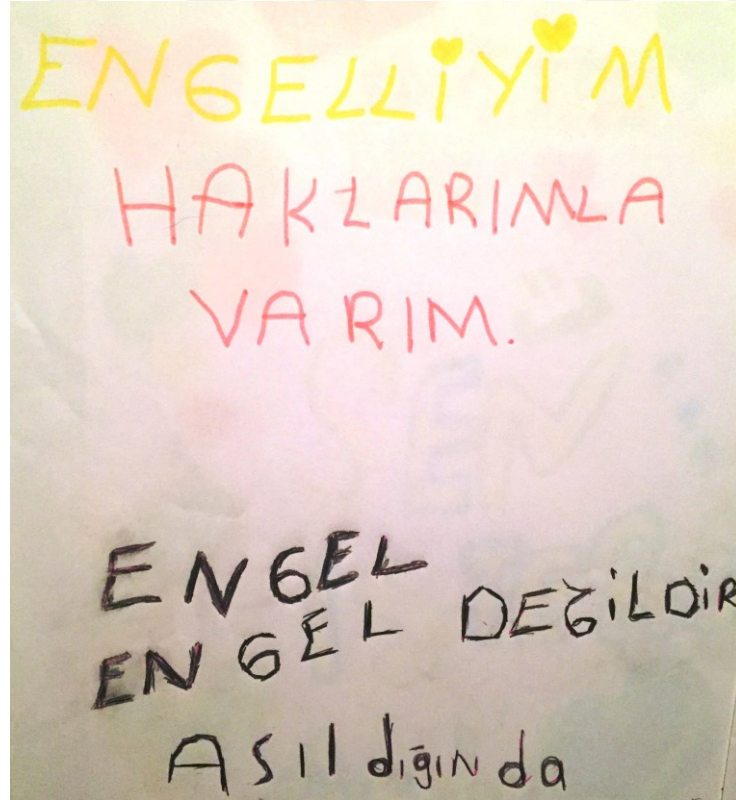 ENGELLİYİM
HAKLARIMLA
VARIM.
ENGEL
ENGEL DEĞİLDİR
ASıldığında